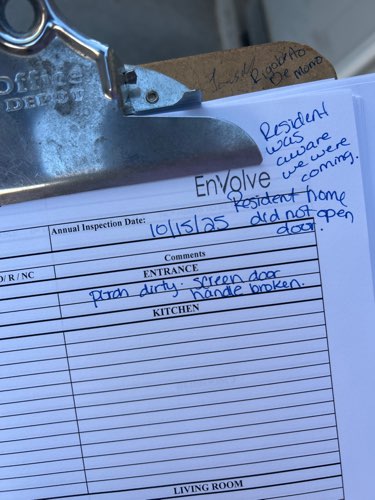 Office
DEPOT
Rigoberto
Demono
Resident
was
aware
we were
coming.
EnVolve
Resident home
did not open
door.
Annual Inspection Date:
10/15/25
O/ R / NC
Comments
ENTRANCE
dirty. screen door
handle broken.
KITCHEN
LIVING ROOM